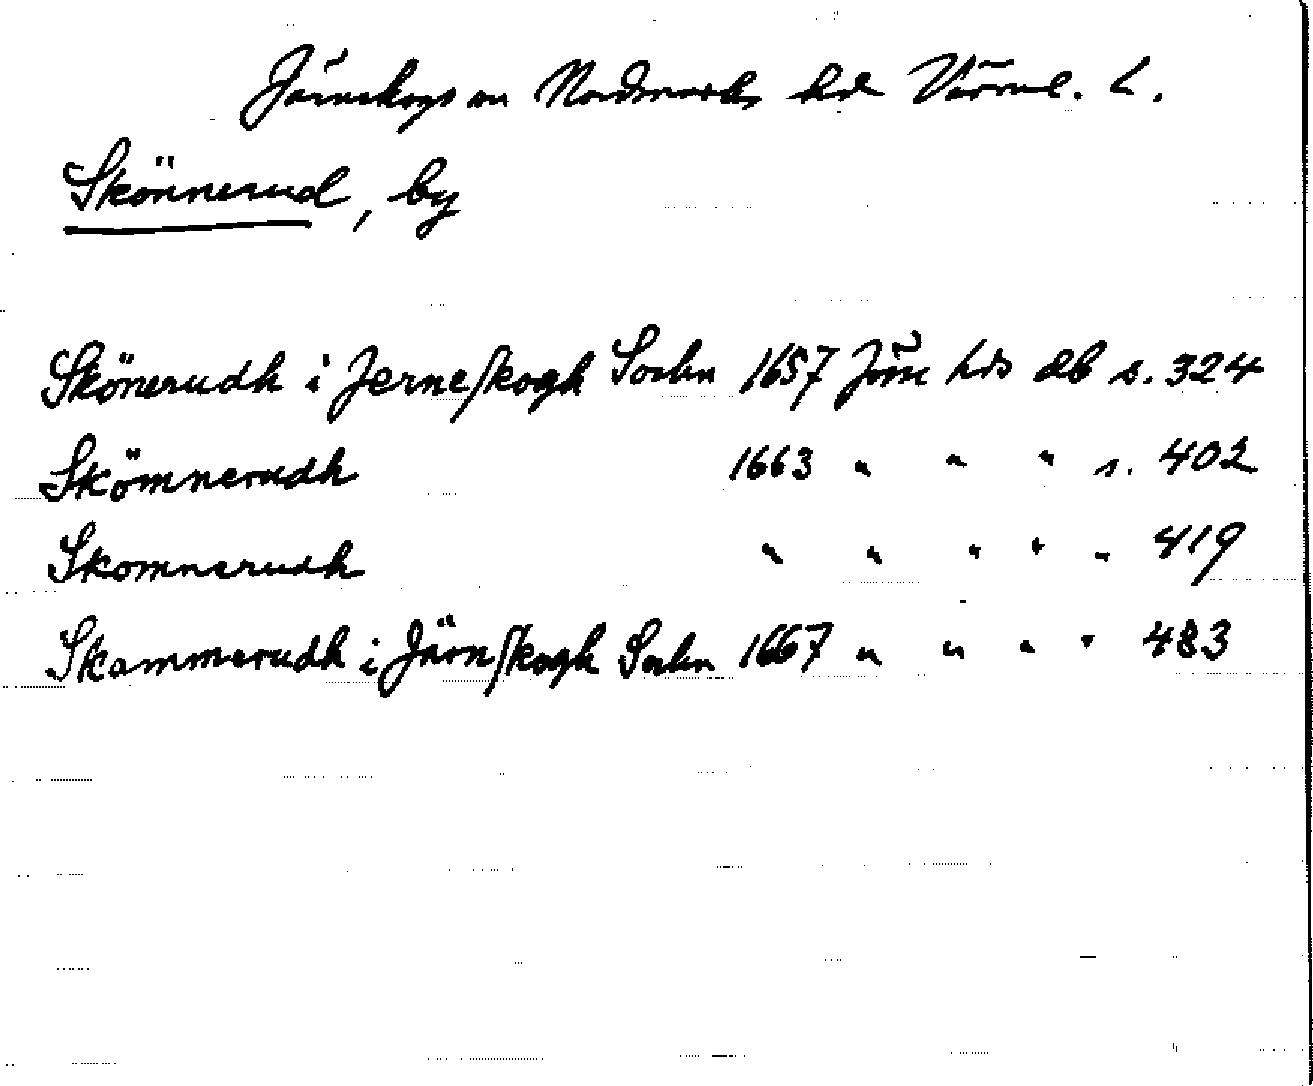 Järnskogs sn Nordmarks hd Värml. L.
Skönnerud, by
Skönerudh i Jerneskogh Sochn 1657 Jösse hds db s. 324
Skömnerudh 1663 " " " s. 402
Skomnerudh " " " " " 419
Skammerudh i Järnskogh Sochn 1667 " " " " 483